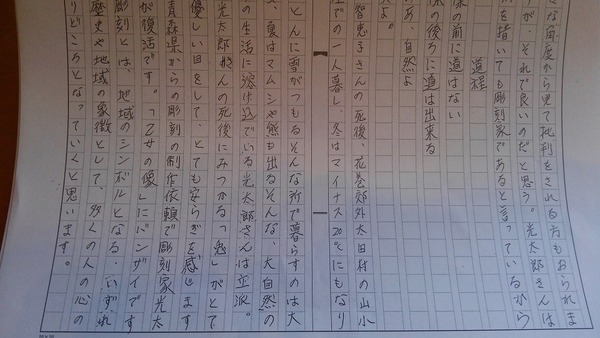 な角度から見て批判をされる方もおられま
が、それで良いのだと思う。光太郎さんは
を描いても彫刻家であると言っているから
道程
の前に道はない
の後ろに道は出来る
あ、自然よ
智恵子さんの死後、花巻郊外太田村の山小
での一人暮し、冬はマイナス20℃にもなり
とんに雪がつもるそんな所で暮らすのは大
、夏はマムシや熊も出るそんな、大自然の
の生活に溶け込んでいる光太郎さんは立派。
光太郎さんの死後にみつかる「鬼」がとて
優しい目をして、とても安らぎを感じます
青森県からの彫刻の制作依頼で彫刻家光太
が復活です。「乙女の像」にバンザイです
彫刻とは、地域のシンボルとなる。いずれ
歴史や地域の象徴として、多くの人の心の
りどころとなっていくと思います。